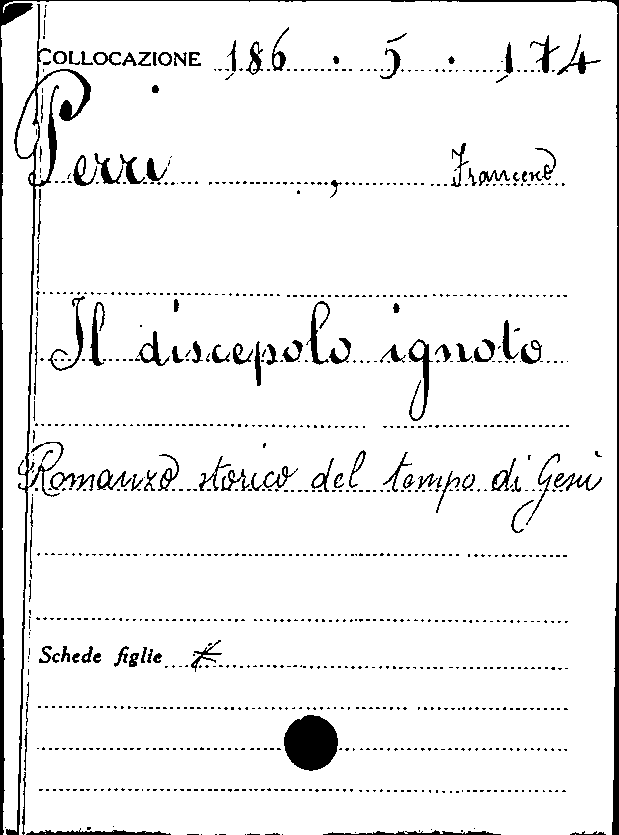 COLLOCAZIONE 186 . 5 . 174
Perri , Francesco
Il discepolo ignoto
Romanzo storico del tempo di Gesù
Schede figlie